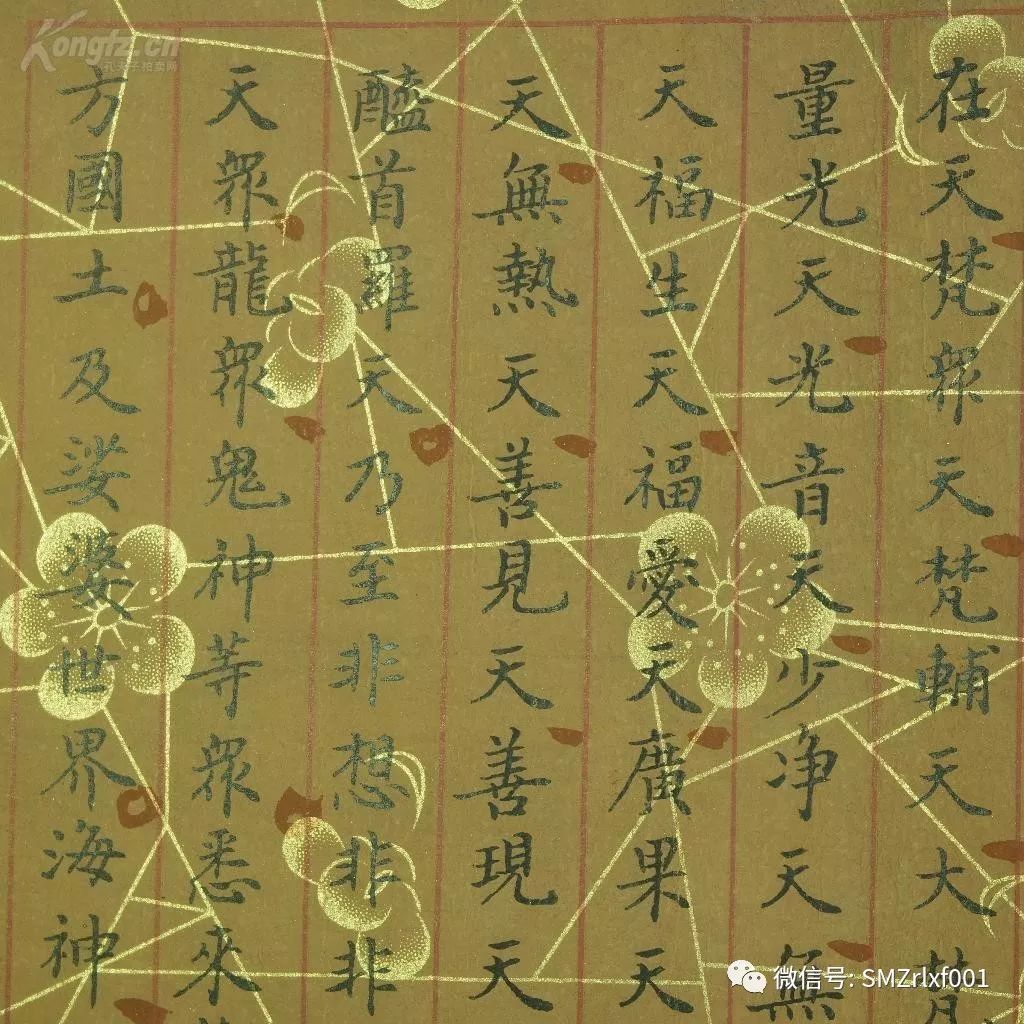 在天梵眾天梵輔天大梵
量光天光音天少净天無
天福生天福愛天廣果天
天無熱天善見天善現天
醯首羅天乃至非想非非
天眾龍眾鬼神等眾悉來
方國土及娑婆世界海神
Kongfz.cn
孔夫子拍卖网
微信号: SMZrlxf001